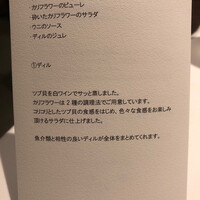 カリフラワーのピューレ
砕いたカリフラワーのサラダ
ウニのソース
ディルのジュレ
①ディル
ツブ貝を白ワインでサッと蒸しました。
カリフラワーは2種の調理法でご用意しています。
コリコリとしたツブ貝の食感をはじめ、色々な食感をお楽しみ
頂けるサラダに仕上げました。
魚介類と相性の良いディルが全体をまとめてくれます。